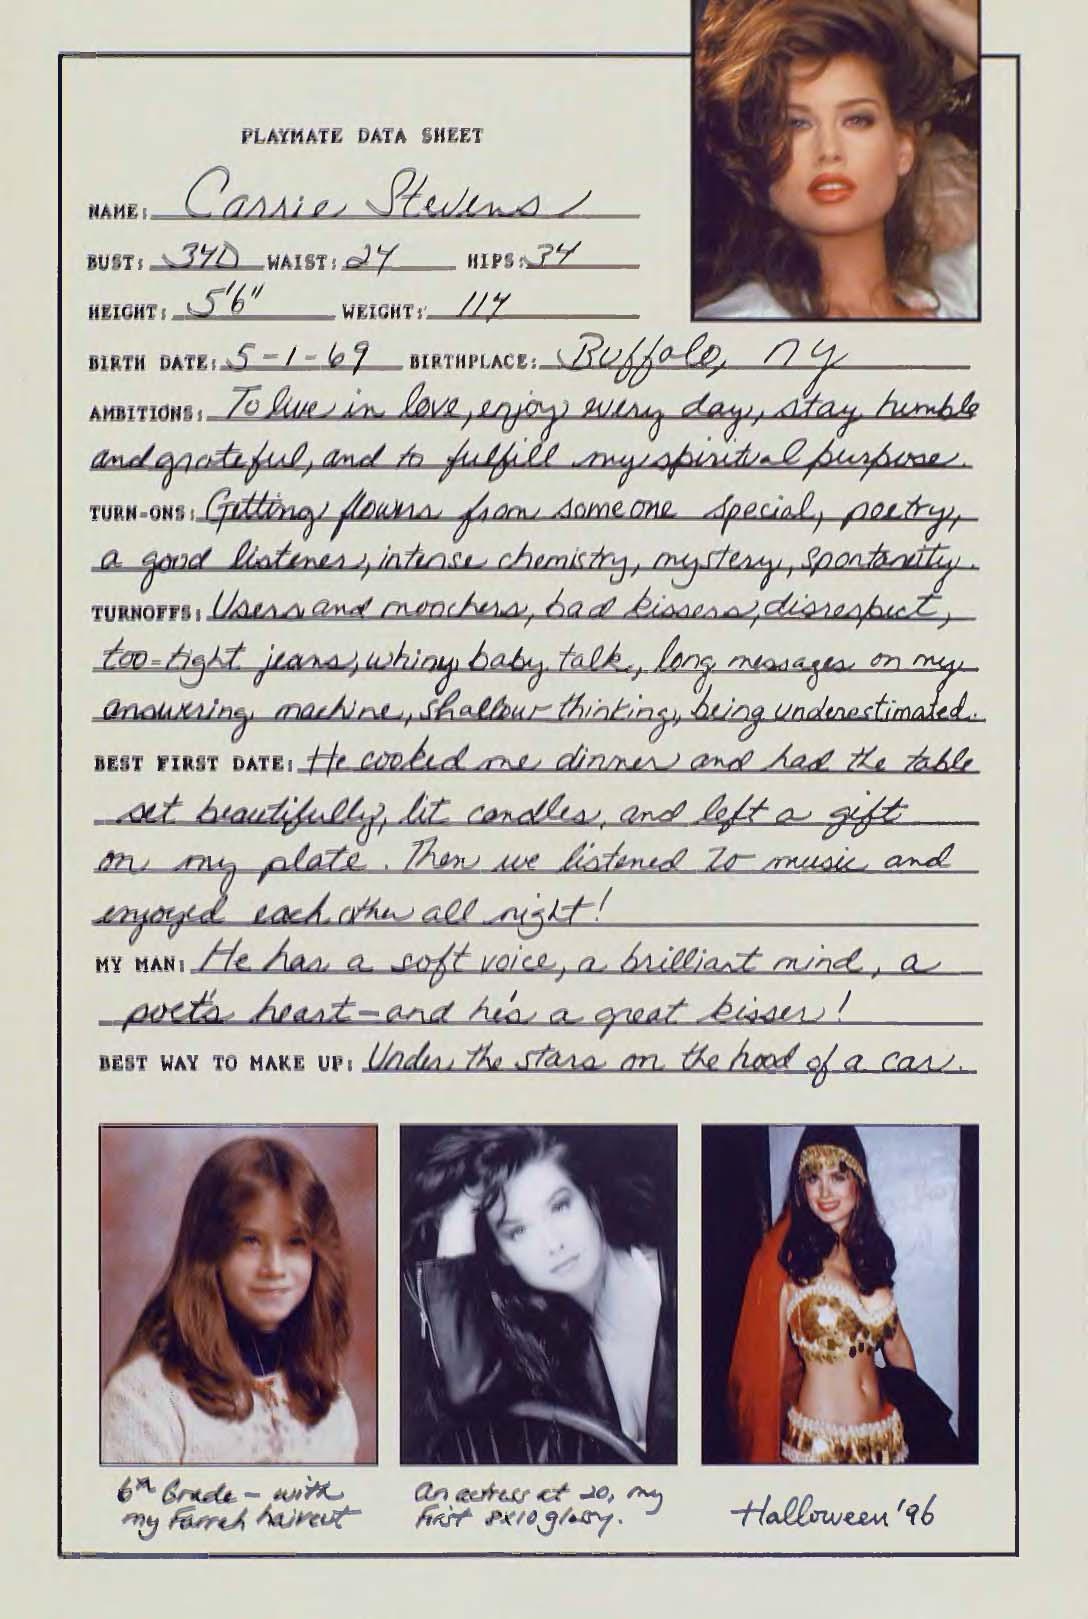 PLAYMATE DATA SHEET
NAME: Carrie Stevens
BUST: 34D WAIST: 24 HIPS: 34
HEIGHT: 5'6" WEIGHT: 114
BIRTH DATE: 5-1-69 BIRTHPLACE: Buffalo, NY
AMBITIONS: To live in love, enjoy every day, stay humble
and grateful, and to fulfill my spiritual purpose.
TURN-ONS: Getting flowers from someone special, poetry,
a good listener, intense chemistry, mystery, spontaneity.
TURNOFFS: Users and moochers, bad kissers, disrespect,
too-tight jeans, whiny baby talk, long messages on my
answering machine, shallow thinking, being underestimated.
BEST FIRST DATE: He cooked me dinner and had the table
set beautifully, lit candles, and left a gift
on my plate. Then we listened to music and
enjoyed each other all night!
MY MAN: He has a soft voice, a brilliant mind, a
poet's heart—and he's a great kisser!
BEST WAY TO MAKE UP: Under the stars on the hood of a car.
6th Grade - with
my Farrah haircut
An actress at 20, my
first 8x10 glossy.
Halloween '96